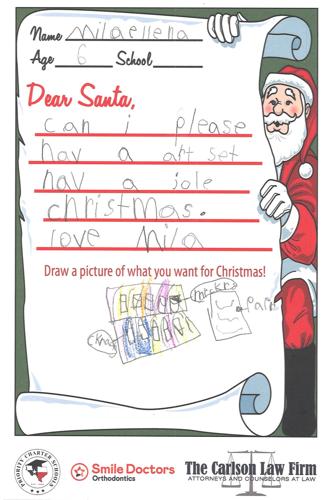 Name Milaellena
Age 6 School
Dear Santa,
can i please
hav a art set
hav a jole
christmas.
love Mila
Draw a picture of what you want for Christmas!
PRIORITY CHARTER SCHOOLS
Smile Doctors
Orthodontics
The Carlson Law Firm
ATTORNEYS AND COUNSELORS AT LAW